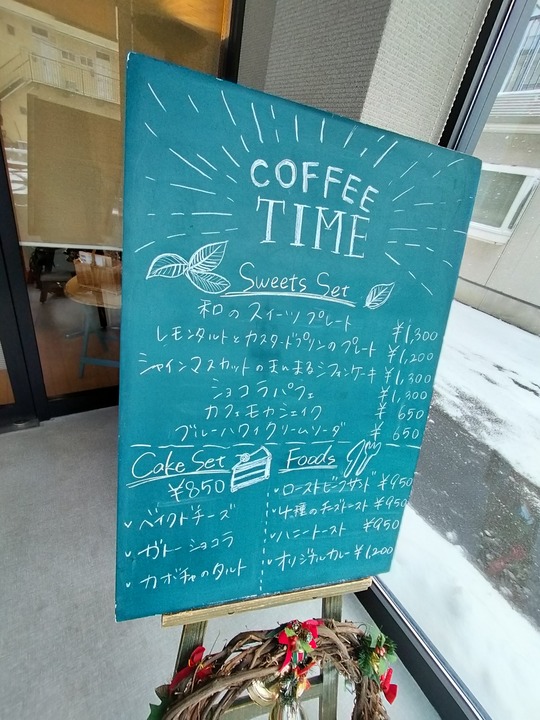 COFFEE
TIME
Sweets Set
和のスイーツプレート ¥1,300
レモンタルトとカスタードプリンのプレート ¥1,200
シャインマスカットのまんまるシフォンケーキ ¥1,300
ショコラパフェ ¥1,300
カフェモカシェイク ¥650
ブルーハワイクリームソーダ ¥650
Cake Set
¥850
ベイクドチーズ
ガトーショコラ
カボチャのタルト
Foods
ローストビーフサンド ¥950
4種のチーズトースト ¥950
ハニートースト ¥950
オリジナルカレー ¥1,200